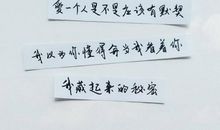 爱一个人是不是应该有默契
我以为你懂得每当我看着你
我藏起来的秘密